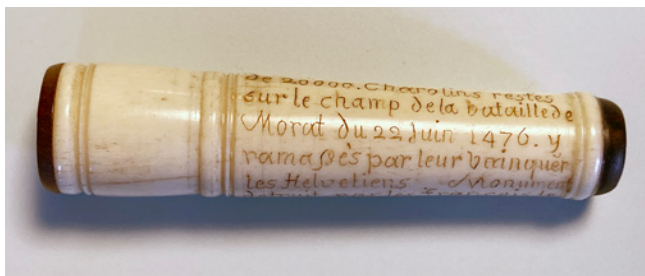 de 20000. Charolins restes
sur le champ dela bataille de
Morat du 22 Juin 1476. y
ramaſsès par leur vainquer
les Helvetiens Monument
detruit par les Français le